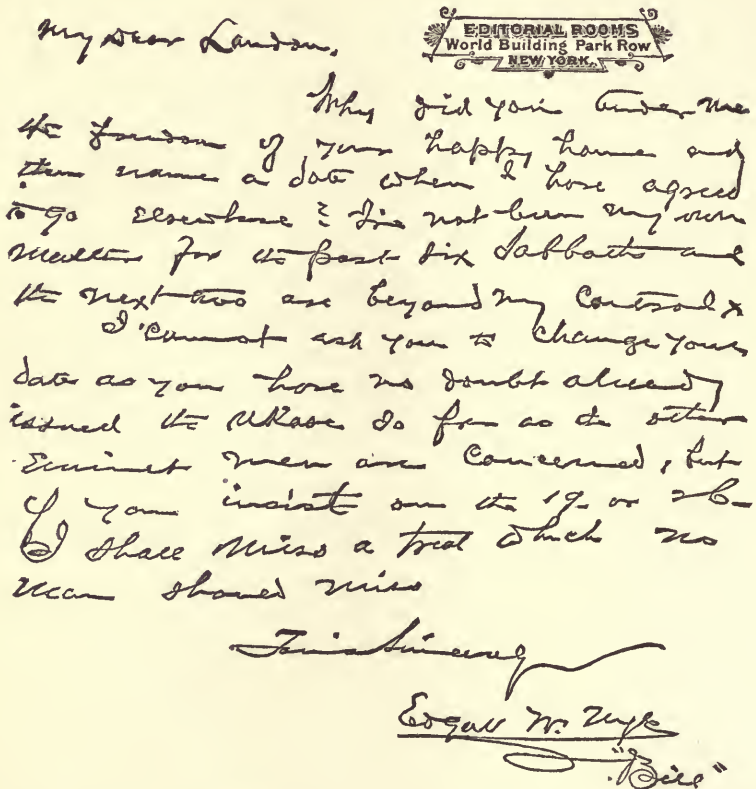 EDITORIAL ROOMS
World Building Park Row
NEW YORK.
My Dear Landon.
Why did you tender me
the freedom of your happy home and
then name a date when I have agreed
to go elsewhere? I've not been my own
master for the past six Sabbaths and
the next two are beyond my control x
I cannot ask you to change your
date as you have no doubt already
issued the ukase so far as the other
Eminent men are concerned, but
if you insist on the 19- or 26-
I shall miss a treat which no
man should miss
Yours Sincerely
Edgar W. Nye
"Bill"